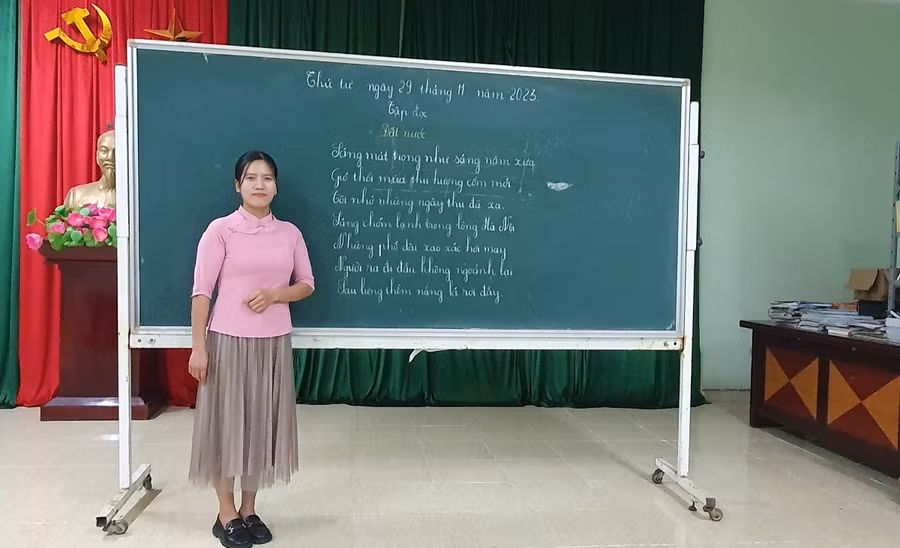 Thứ tư ngày 29 tháng 11 năm 2023.
Tập đọc
Đất nước
Sáng mát trong như sáng năm xưa
Gió thổi mùa thu hương cốm mới
Tôi nhớ những ngày thu đã xa.
Sáng chớm lạnh trong lòng Hà Nội
Những phố dài xao xác hơi may
Người ra đi đầu không ngoảnh lại
Sau lưng thềm nắng lá rơi đầy.